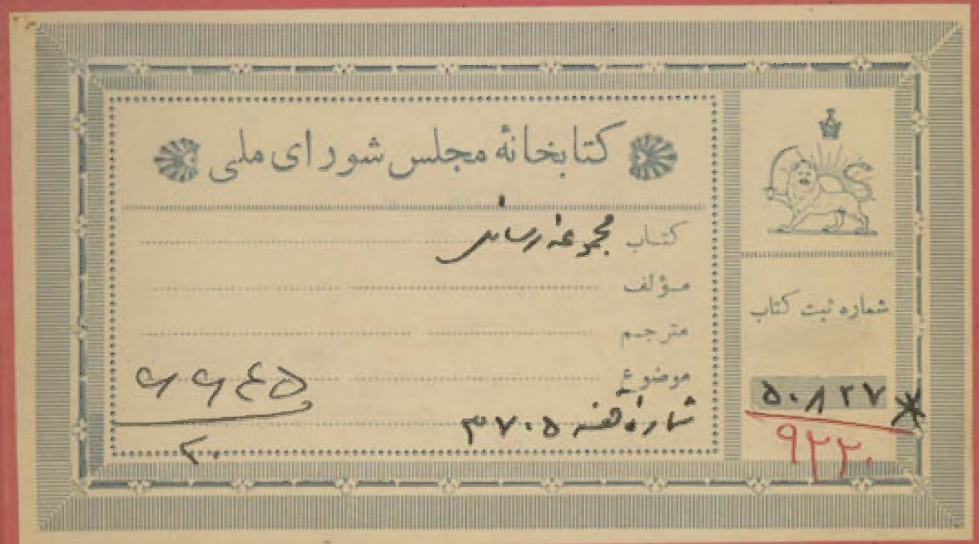 کتابخانهٔ مجلس شورای ملی
کتاب مجموعه رسائل
مؤلف
مترجم
موضوع
شماره قفسه ۳۷۰۵
شماره ثبت کتاب
۵۰۸۲۷
۹۲۲۰